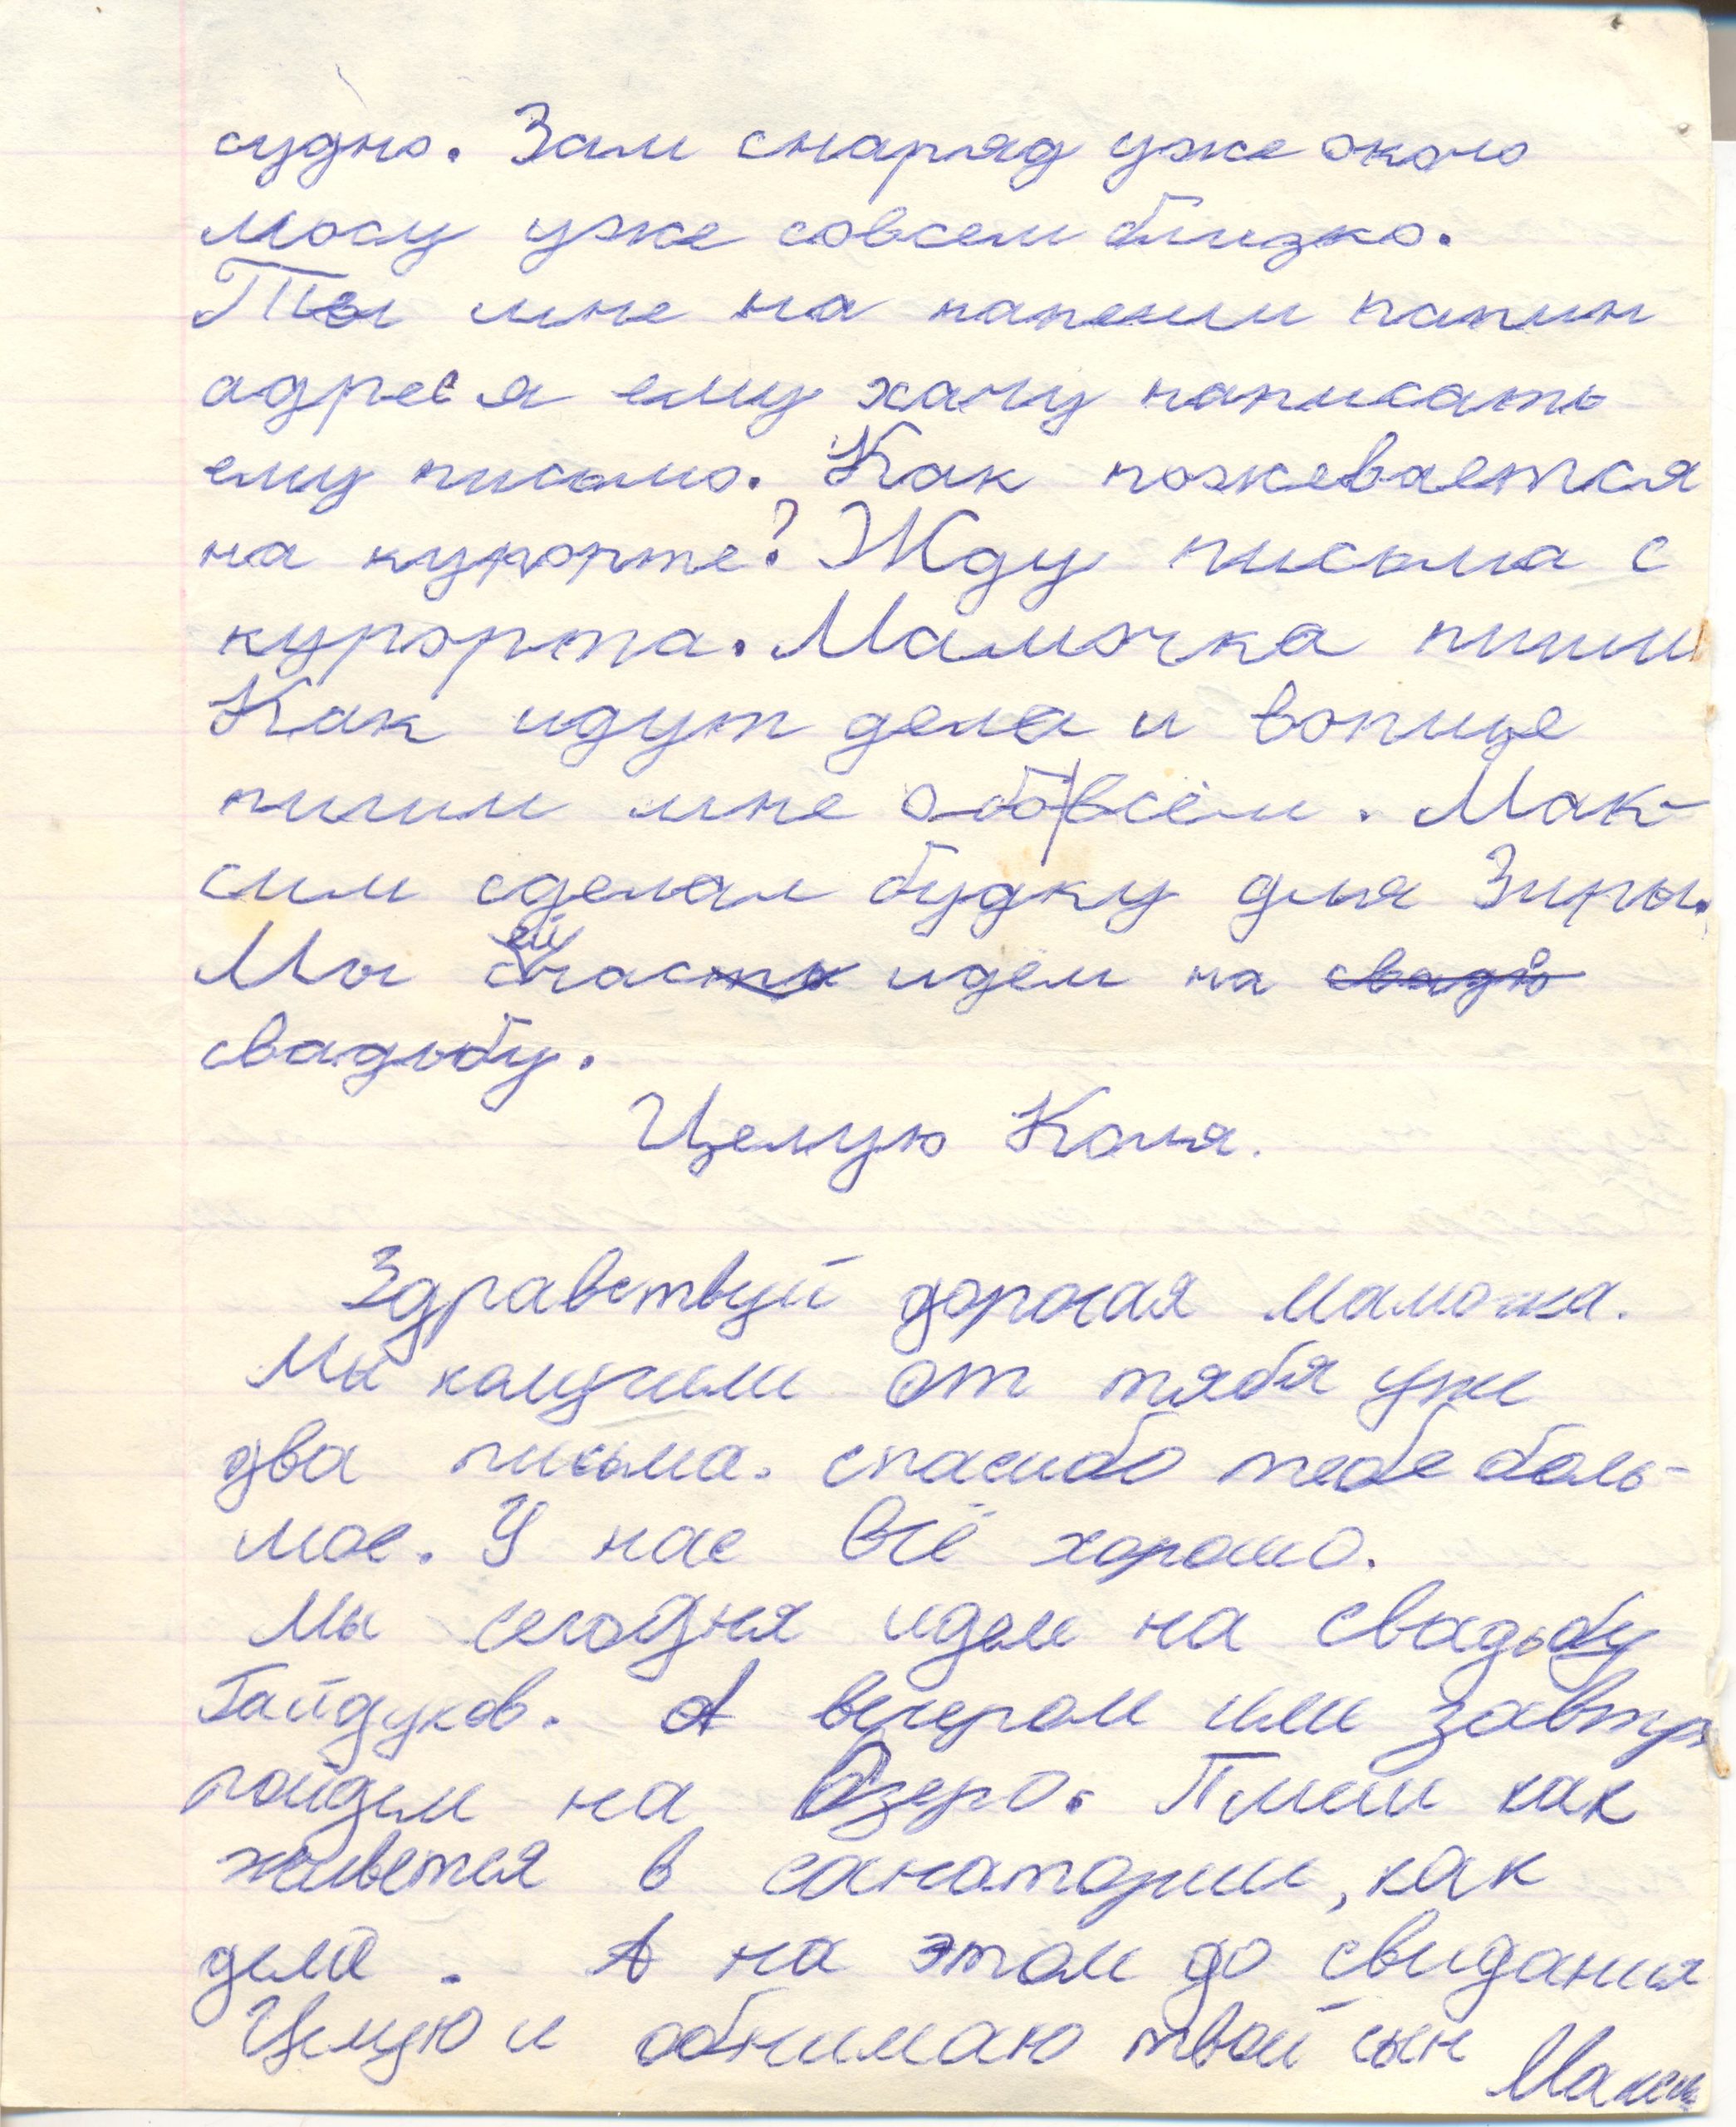 судно. Зам снаряд уже около
мосу уже совсем близко.
Ты мне на напеши папин
адрес я ему хачу написать
ему письмо. Как пожевается
на курорте? Жду письма с
курорта. Мамочка пиши
Как идут дела и вопще
пиши мне обо всём. Мак-
сим сделал будку для Зиры.
Мы сейчас идём на свадь
свадьбу.
Целую Коля.
Здравствуй дорогая мамочка.
Мы получили от тябя уже
два письма. спасибо тебе боль-
шое. У нас всё хорошо.
Мы сегодня идем на свадьбу
Гайдуков. А вечером или завтра
пойдем на Озеро. Пиши как
живется в санатории, как
дела. А на этом до свидания
Целую и обнимаю твой сын Максим